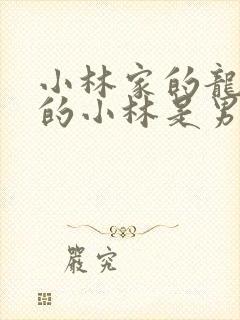 小林家的龍
的小林是男
嚴究